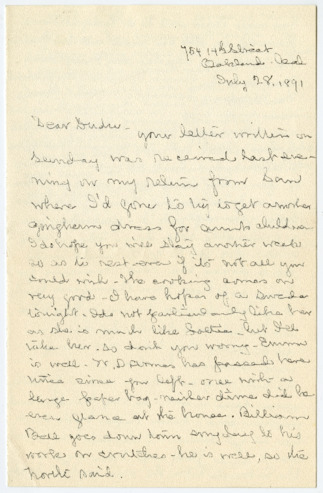 754 14th Street
Oakland. Cal
July 28, 1891
Dear Dudu -
your letter written on
Sunday was received last eve-
ning on my return from San
where I'd gone to try to get another
gingham dress for Aunts children
I do hope you will stay another week
so as to rest - even if it not all you
could wish - The cooking comes on
very good - I have hopes of a Swede
tonight - I do not particularly like her
as she is much like but I'll
take her. so don't you worry - Emma
is well - W. D has passed here
twice since you left - once with a
large paper bag - neither time did he
even glance at the house. William
Bell goes down town any day to his
work on crutches - he is well, so the
North said.